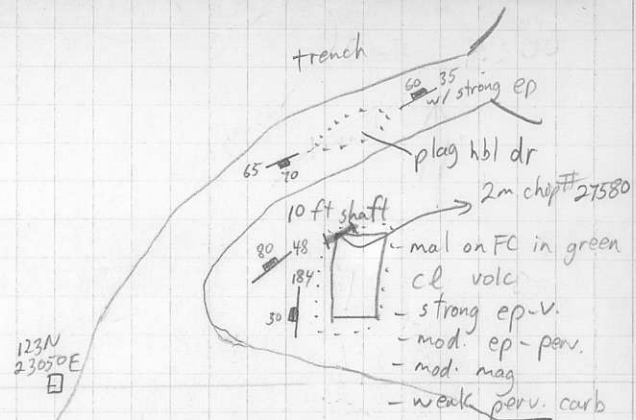 trench
60 35
w/ strong ep
65 70
plag hbl dr
2m chip # 27580
10 ft shaft
80 48
184
30
- mal on FC in green
cl volc
- strong ep-v.
- mod. ep-perv.
- mod. mag
- weak perv. carb
123N
23050E